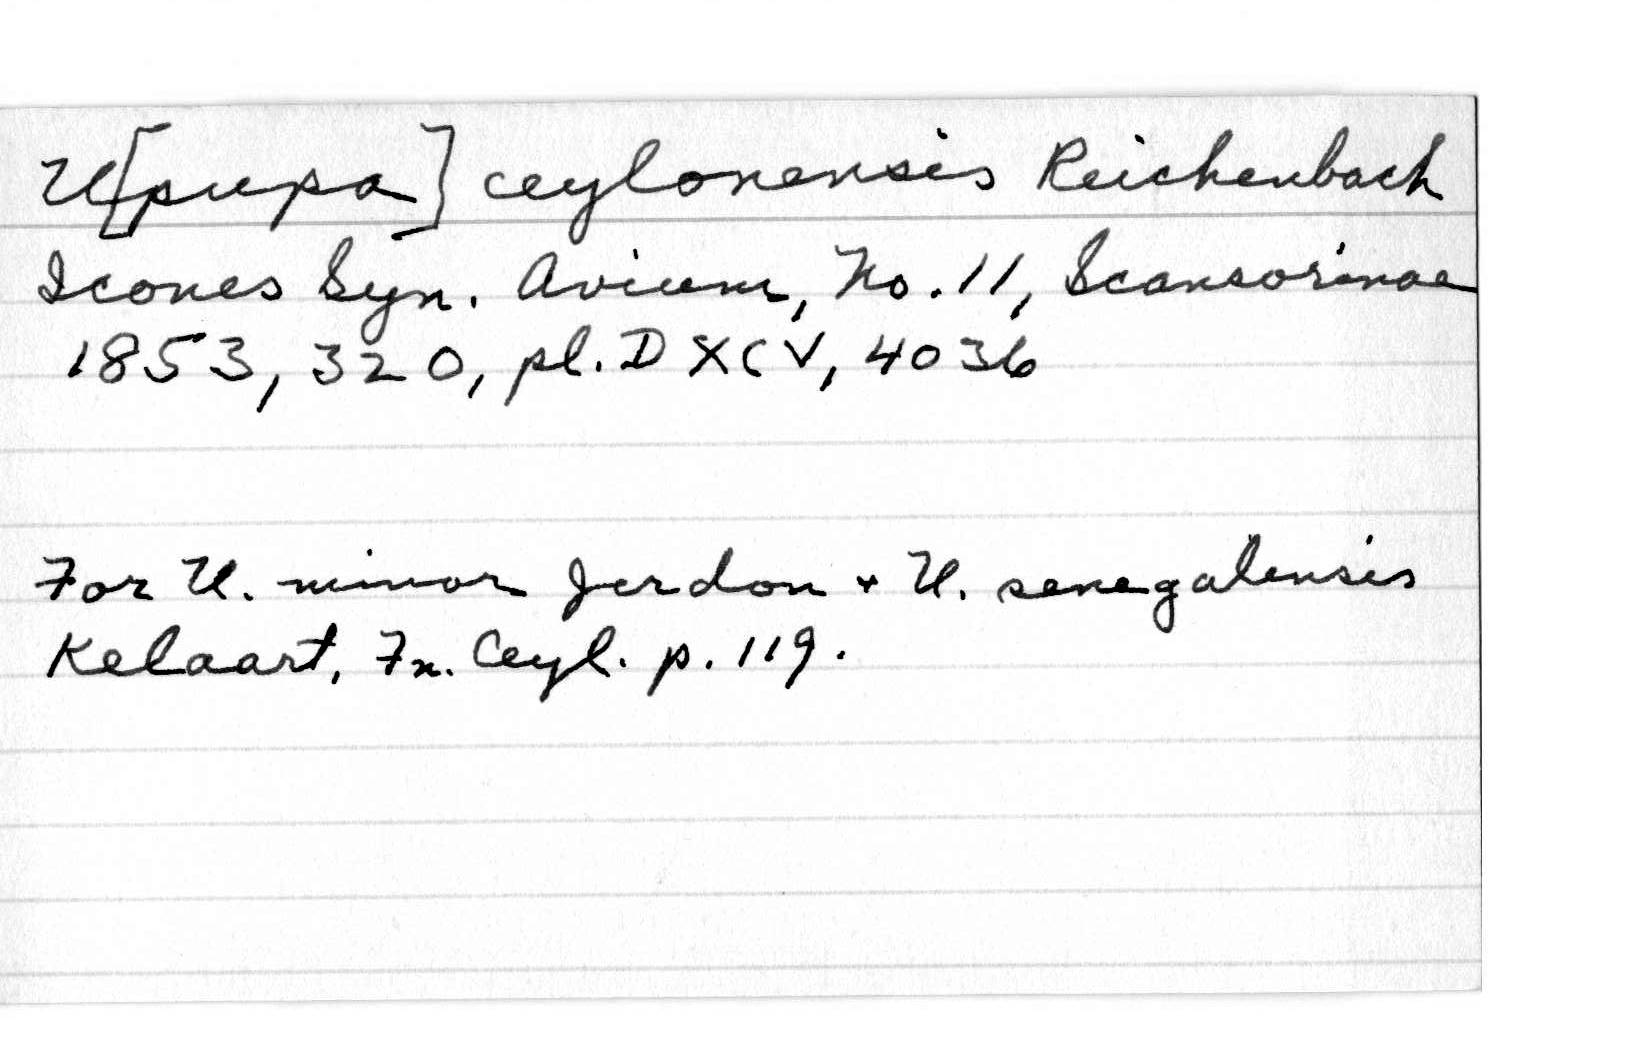 U[pupa] ceylonensis Reichenbach
Icones Syn. Avium, No. 11, Scansorinae
1853, 320, pl. DXCV, 4036
For U. minor Jerdon + U. senegalensis
Kelaart, Fn. Ceyl. p. 119.